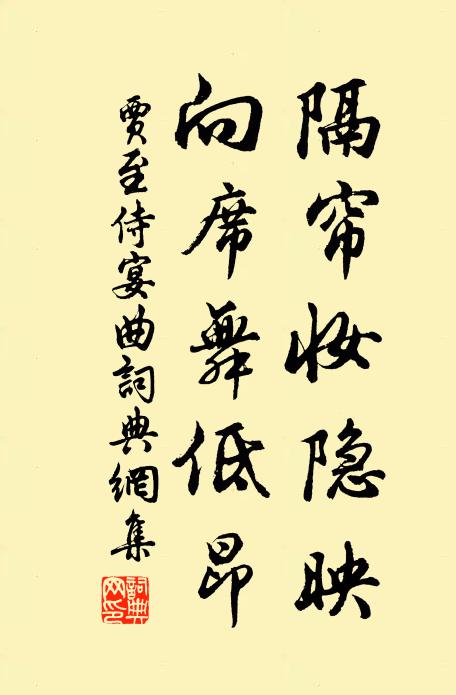 隔帘妆隐映
向席舞低昂
贾至侍宴曲詞典網集
詞典网印